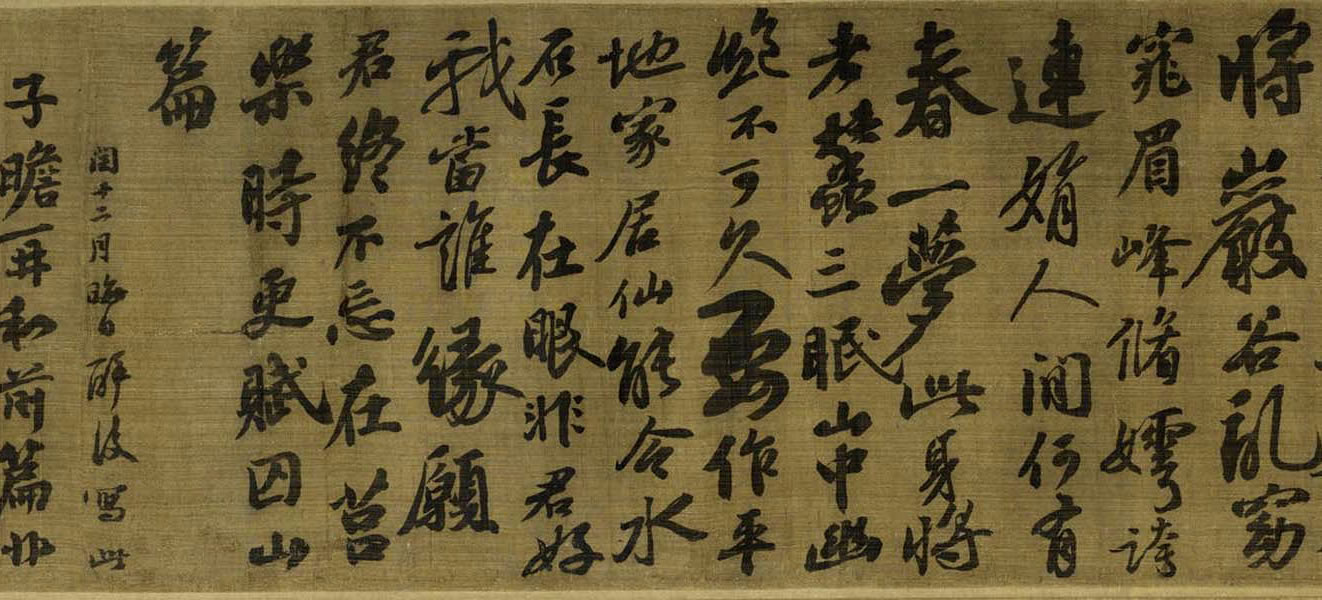 將巖谷亂窈
窕眉峰脩嫮誇
連娟人間何有
春一夢此身將
老蠶三眠山中幽
絶不可久要作平
地家居仙能令水
石長在眼非君好
我當誰緣願
君終不忘在莒
樂時更賦囚山
篇
閏十二月晦日醉後寫此
子瞻再和前篇非